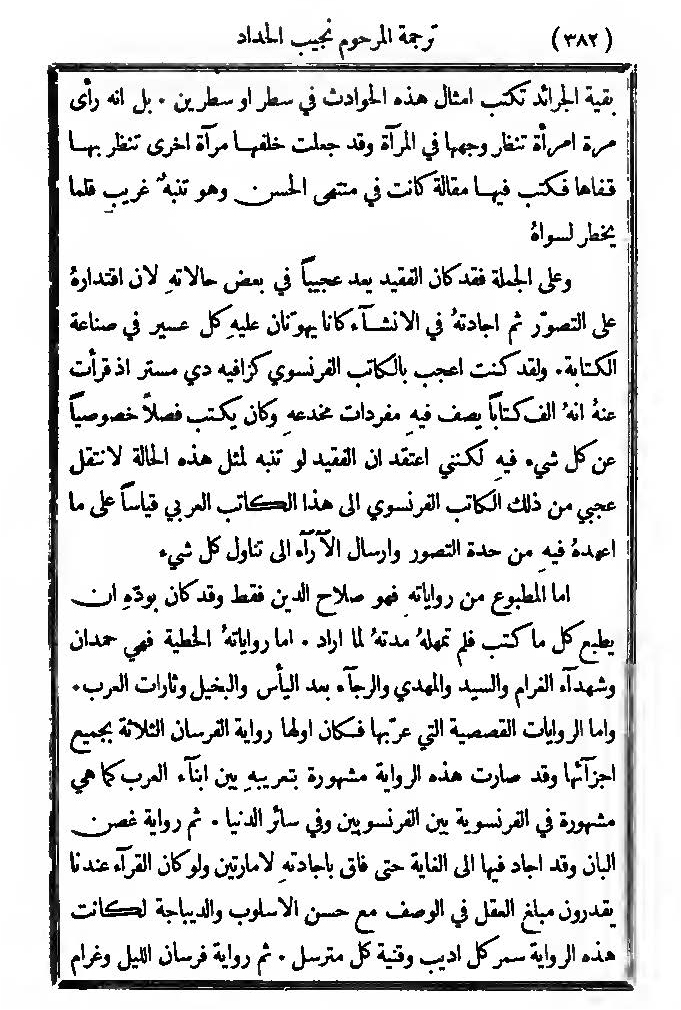 (٣٨٢) ترجمة المرحوم نجيب الحداد
بقية الجرائد تكتب امثال هذه الحوادث في سطر او سطرين . بل انه رأى
مرة امرأة تنظر وجهها في المرآة وقد جعلت خلفها مرآة اخرى تنظر بها
قفاها فكتب فيها مقالة كانت في منتهى الحسن وهو تنبهٌ غريب قلما
يخطر لسواهُ
وعلى الجملة فقد كان الفقيد يعد عجيباً في بعض حالاتهِ لان اقتدارهُ
على التصوّر ثم اجادتهُ في الانشآء كانا يهوّنان عليهِ كل عسير في صناعة
الكتابة. ولقد كنت اعجب بالكاتب الفرنسوي كزافيه دي مستر اذ قرأت
عنهُ انهُ الف كتاباً يصف فيهِ مفردات مخدعهِ وكان يكتب فصلاً خصوصياً
عن كل شيء فيهِ لكنني اعتقد ان الفقيد لو تنبه لمثل هذه الحالة لانتقل
عجبي من ذلك الكاتب الفرنسوي الى هذا الكاتب العربي قياساً على ما
اعهدهُ فيهِ من حدة التصور وارسال الآرآء الى تناول كل شيء
اما المطبوع من رواياتهِ فهو صلاح الدين فقط وقد كان بودّهِ ان
يطبع كل ما كتب فلم تمهلهُ مدتهُ لما اراد . اما رواياتهُ الخطية فهي حمدان
وشهدآء الغرام والسيد والمهدي والرجآء بعد اليأس والبخيل وثارات العرب.
واما الروايات القصصية التي عرّبها فكان اولها رواية الفرسان الثلاثة بجميع
اجزآئها وقد صارت هذه الرواية مشهورة بتعريبهِ بين ابنآء العرب كما هي
مشهورة في الفرنسوية بين الفرنسويين وفي سائر الدنيا . ثم رواية غصن
البان وقد اجاد فيها الى الغاية حتى فاق باجادتهِ لامارتين ولو كان القرآء عندنا
يقدرون مبلغ العقل في الوصف مع حسن الاسلوب والديباجة لكانت
هذه الرواية سمر كل اديب وقنية كل مترسل . ثم رواية فرسان الليل وغرام